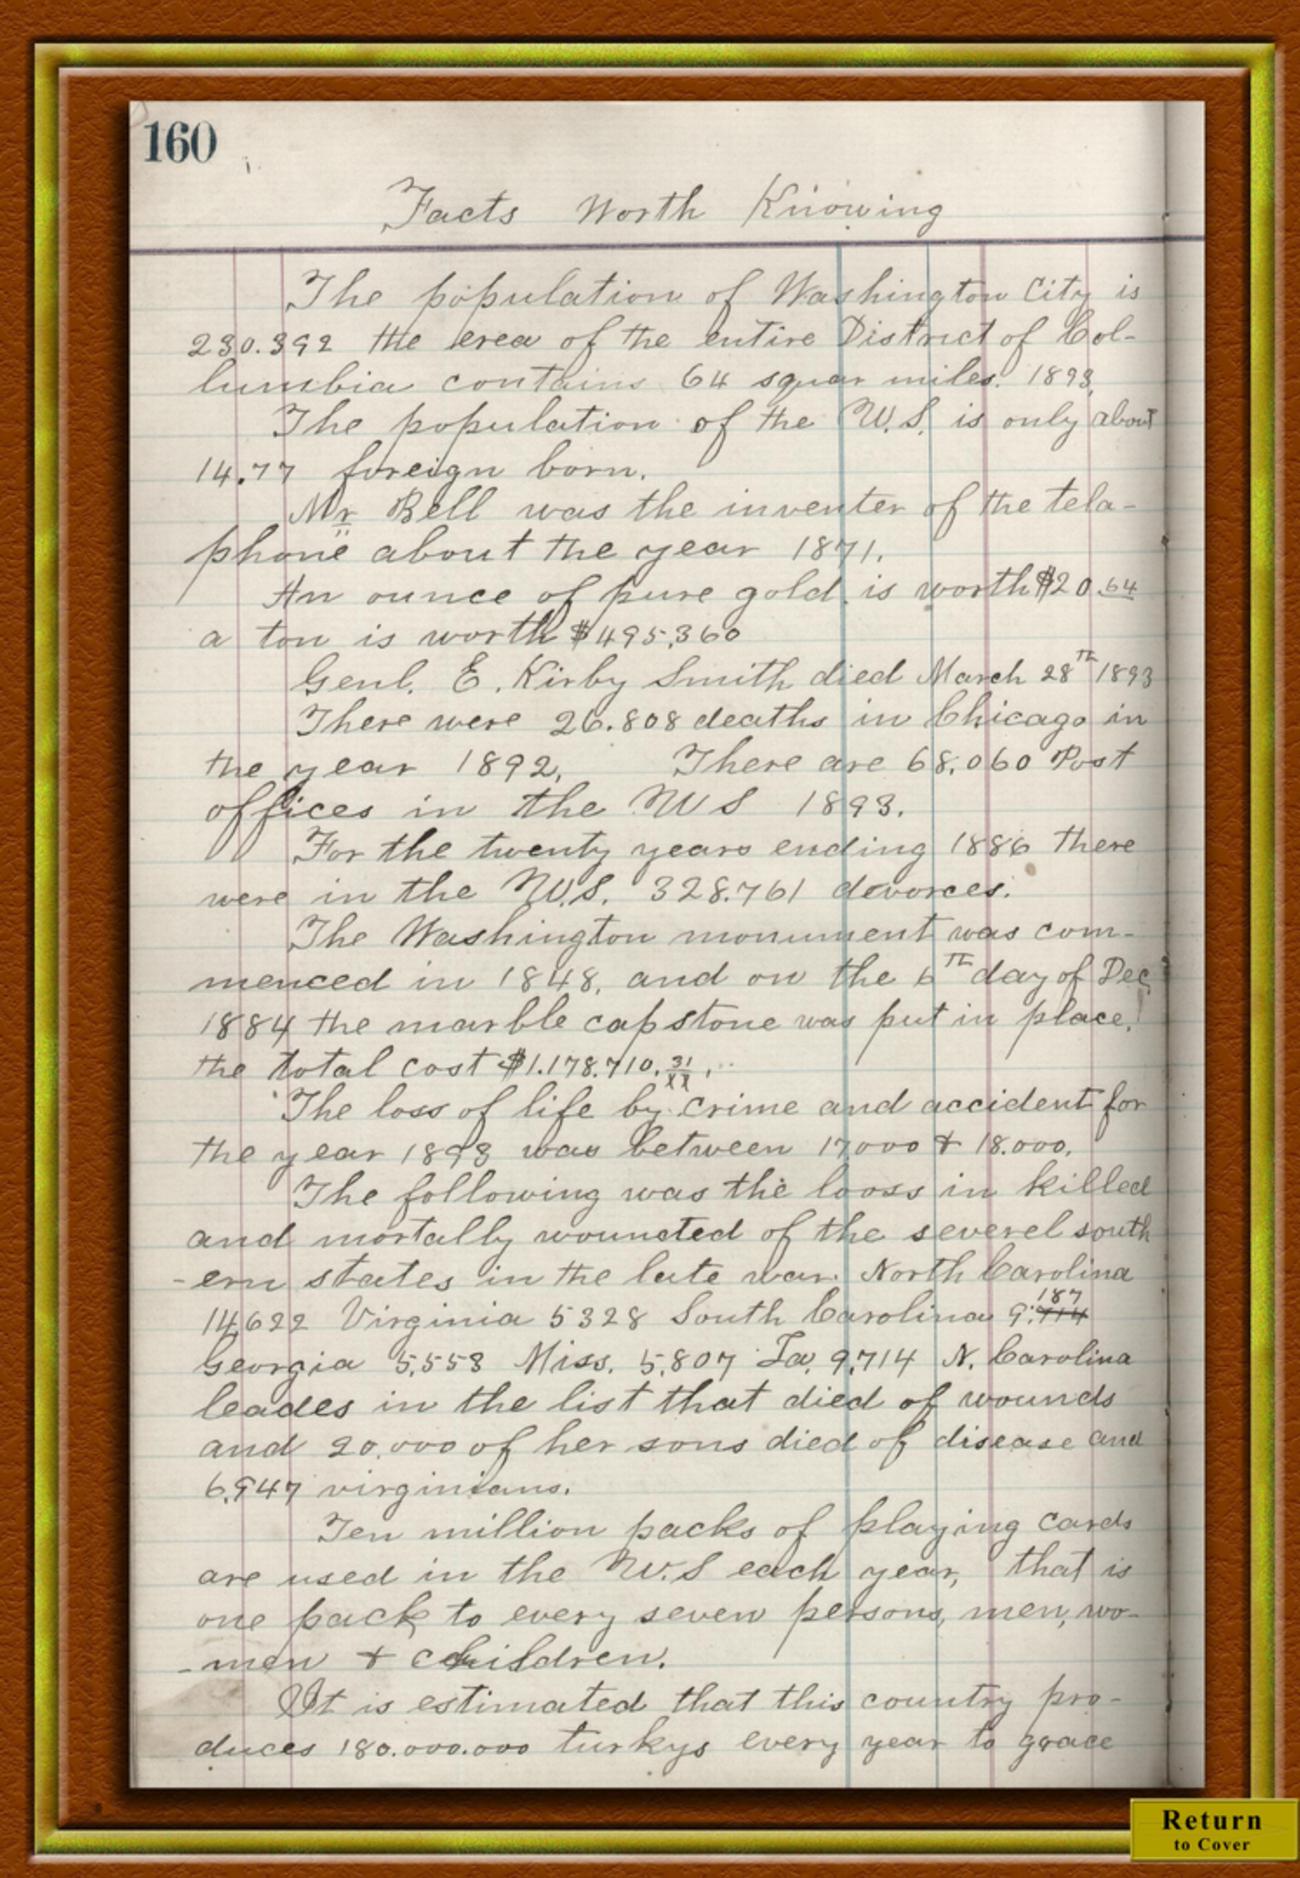 160
Facts Worth Knowing
The population of Washington City is
230.392 the erea of the entire District of Col-
lumbia contains 64 squar miles. 1893.
The population of the U.S. is only about
14.77 foreign born.
Mr Bell was the inventer of the tela-
phone about the year 1871.
An ounce of pure gold is worth $20.64
a ton is worth $495,360
Genl. E. Kirby Smith died March 28th 1893
There were 26.808 deaths in Chicago in
the year 1892, There are 68,060 Post
offices in the U S 1893.
For the twenty years ending 1886 there
were in the U.S. 328.761 devorces.
The Washington monument was com-
menced in 1848, and on the 6th day of Dec
1884 the marble capstone was put in place.
the total cost $1.178.710.31/xx.
The loss of life by crime and accident for
the year 1893 was between 17000 & 18.000.
The following was the looss in killed
and mortally wounded of the severel south
-ern states in the late war. North Carolina
14,622 Virginia 5328 South Carolina 9.187 714
Georgia 5,553 Miss. 5,807 La. 9,714 N. Carolina
leades in the list that died of wounds
and 20,000 of her sons died of disease and
6,947 virginians.
Ten million packs of playing cards
are used in the U.S each year, that is
one pack to every seven persons, men, wo-
-men & children.
It is estimated that this country pro-
duces 180.000.000 turkys every year to grace
Return
to Cover